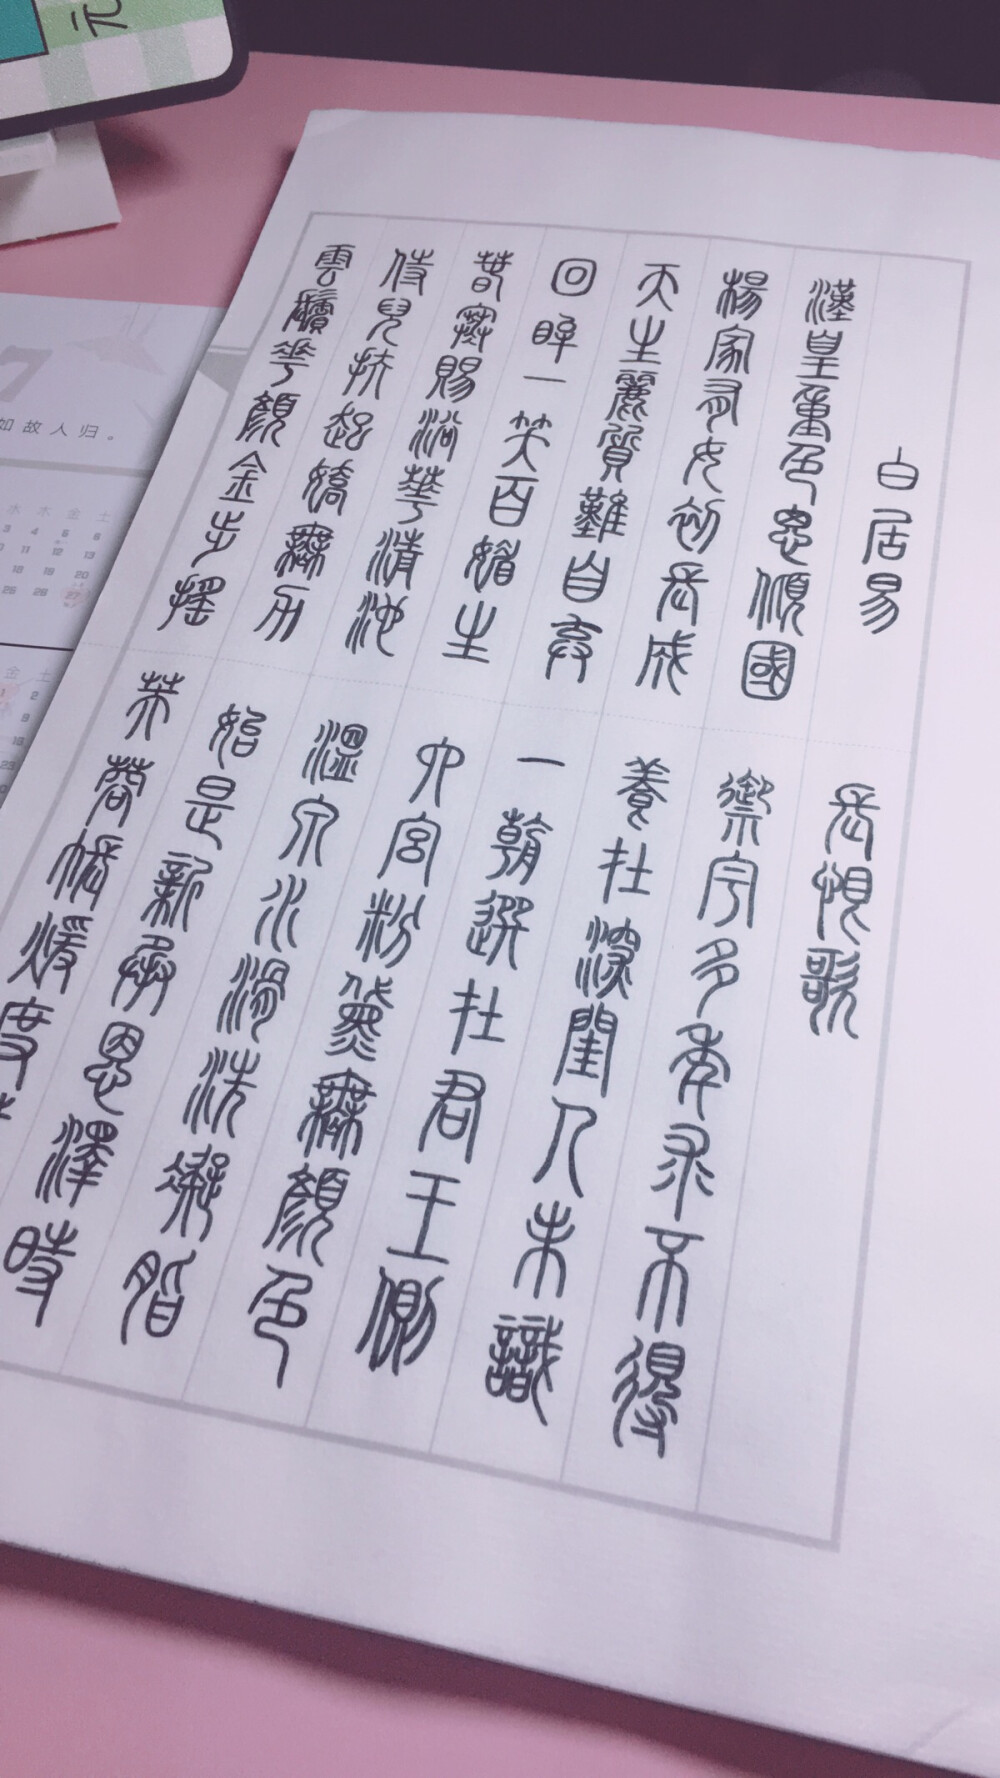 白居易 長恨歌
漢皇重色思傾國 禦宇多年求不得
楊家有女初長成 養在深閨人未識
天生麗質難自棄 一朝選在君王側
回眸一笑百媚生 六宮粉黛無顏色
春寒賜浴華清池 溫泉水滑洗凝脂
侍兒扶起嬌無力 始是新承恩澤時
雲鬢花顏金步搖 芙蓉帳暖度
元
7
如故人归。
水 木 金 土
3 4 5 6
10 11 12 13
18 19 20
25 26 27
金 土
1 2